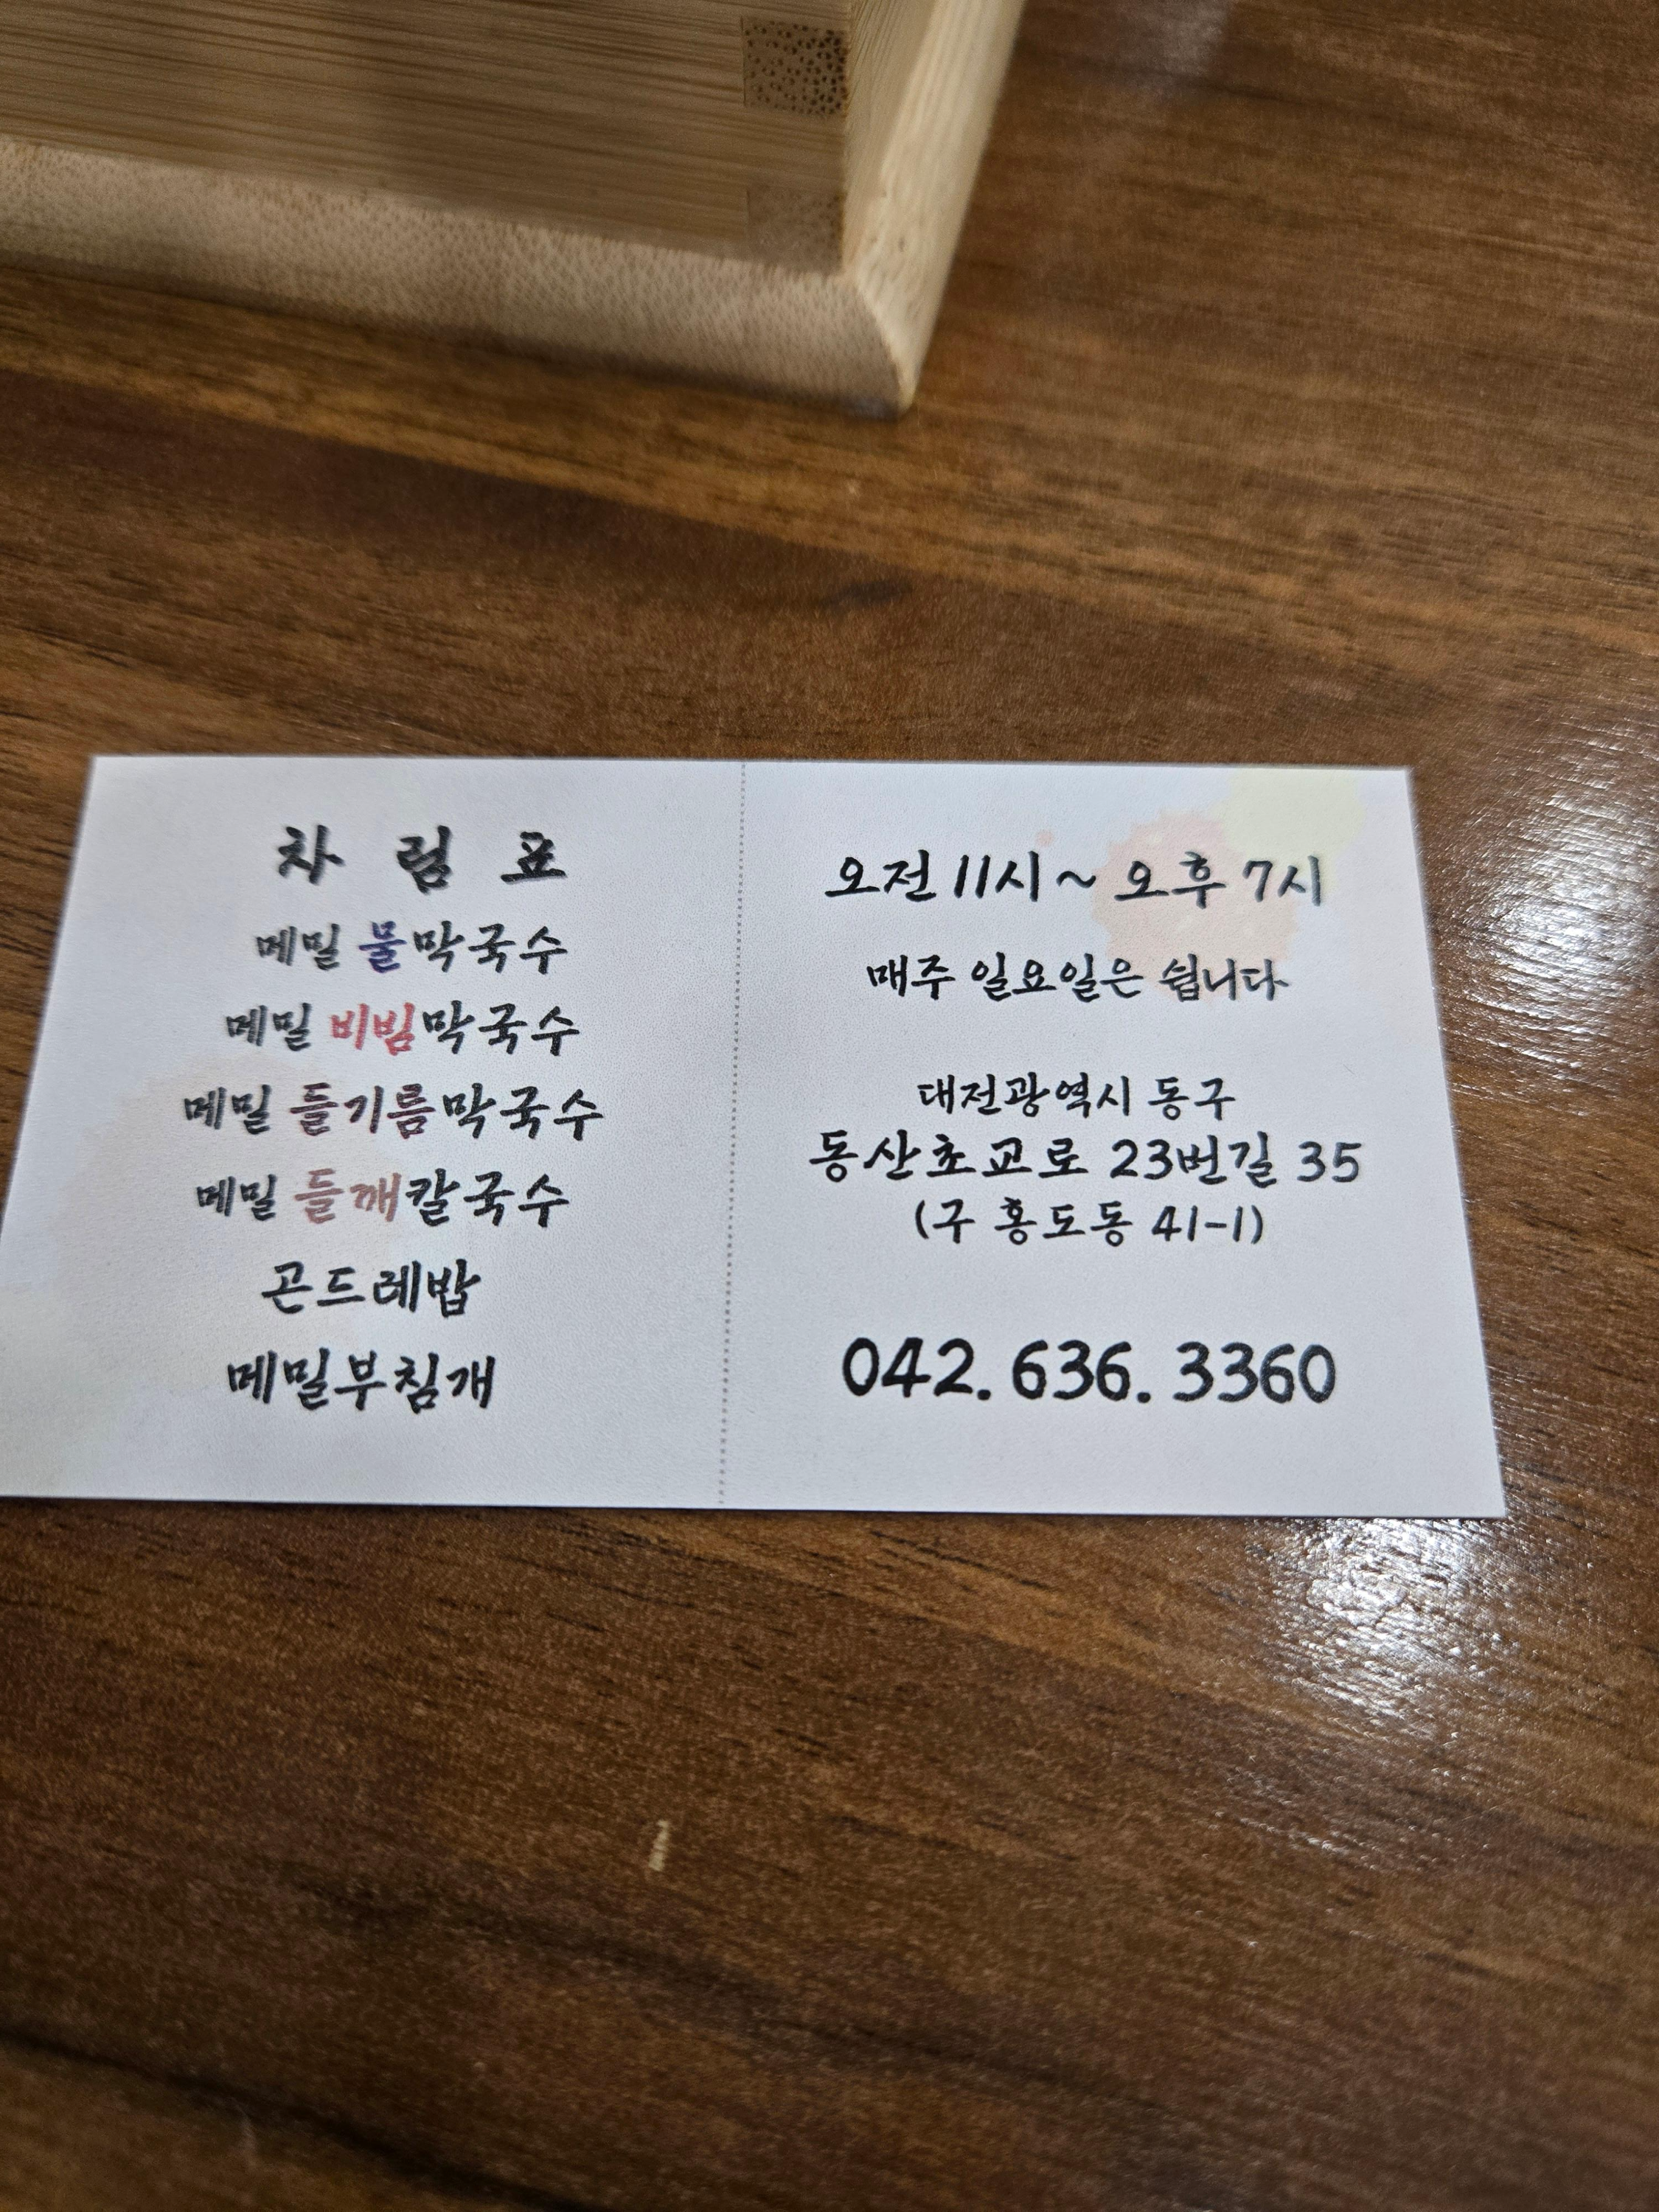 차림표
메밀 물막국수
메밀 비빔막국수
메밀 들기름막국수
메밀 들깨칼국수
곤드레밥
메밀부침개
오전 11시 ~ 오후 7시
매주 일요일은 쉽니다
대전광역시 동구
동산초교로 23번길 35
(구 홍도동 41-1)
042. 636. 3360